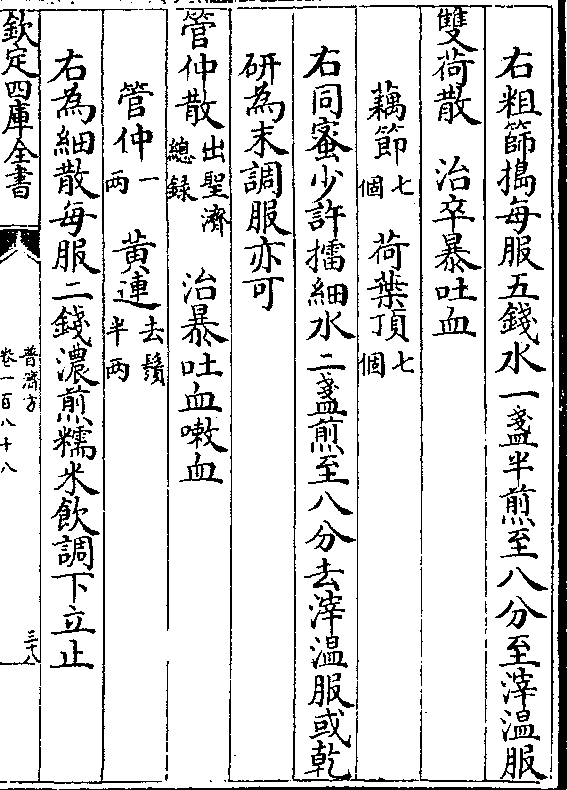 右粗篩搗每服五錢水一盞半煎至八分至滓溫服
雙荷散 治卒暴吐血
藕節七個 荷葉頂七個
右同蜜少許擂細水二盞煎至八分去滓溫服或乾
研為末調服亦可
管仲散出聖濟總録 治暴吐血嗽血
管仲一兩 黃連去鬚半兩
右為細散每服二錢濃煎糯米飲調下立止
欽定四庫全書
普濟方
卷一百八十八
三十八